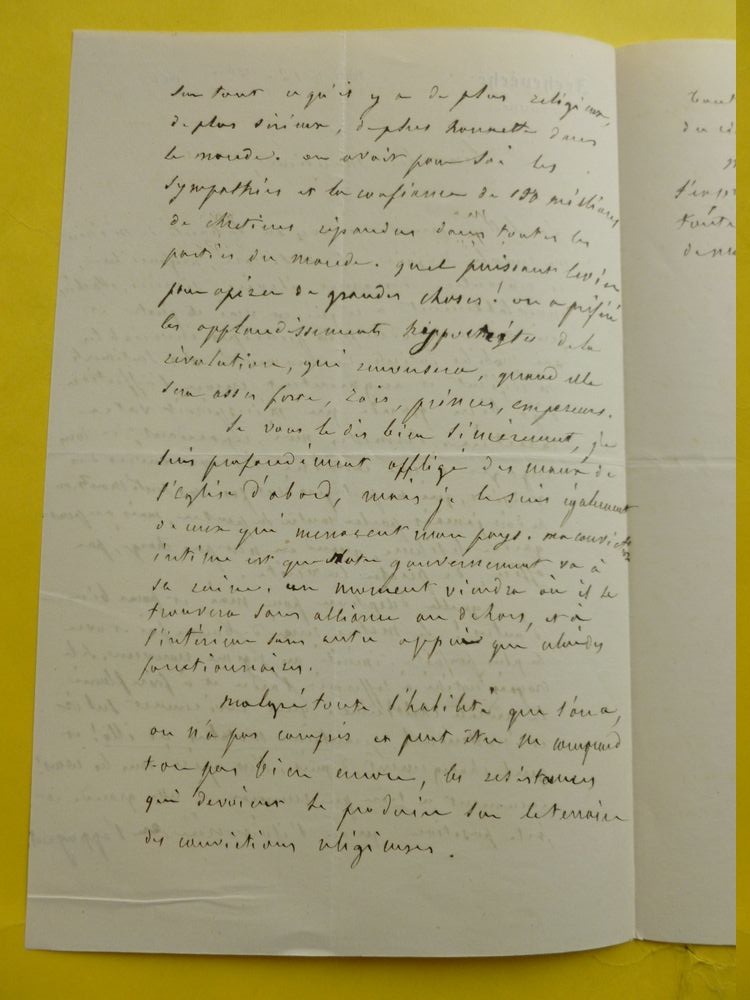 sur tout ce qu'il y a de plus religieux,
de plus sérieux, de plus honnette dans
le monde. on avait pour soi les
sympathies et la confiance de millions
de chretiens répandus dans toutes les
parties du monde. quel puissant levier
pour opérer de grandes choses! on a préféré
les applaudissements hyppocrites de la
révolution, qui renversera, quand elle
sera assez forte, rois, princes, empereurs.
Je vous le dis bien sincèrement, je
suis profondément affligé des maux de
l'Eglise d'abord, mais je le suis également
de ceux qui menacent mon pays. ma conviction
intime est que Notre gouvernement va à
sa ruine. un moment viendra où il se
trouvera sans alliance au dehors, et à
l'intérieur sans autre appui que celui des
fonctionnaires.
Malgré toute l'habilité que l'on a,
on n'a pas compris et peut être ne comprend
t-on pas bien encore, les résistances
qui devoient se produire sur le terrain
des convictions religieuses.
tout
l'exp
toute